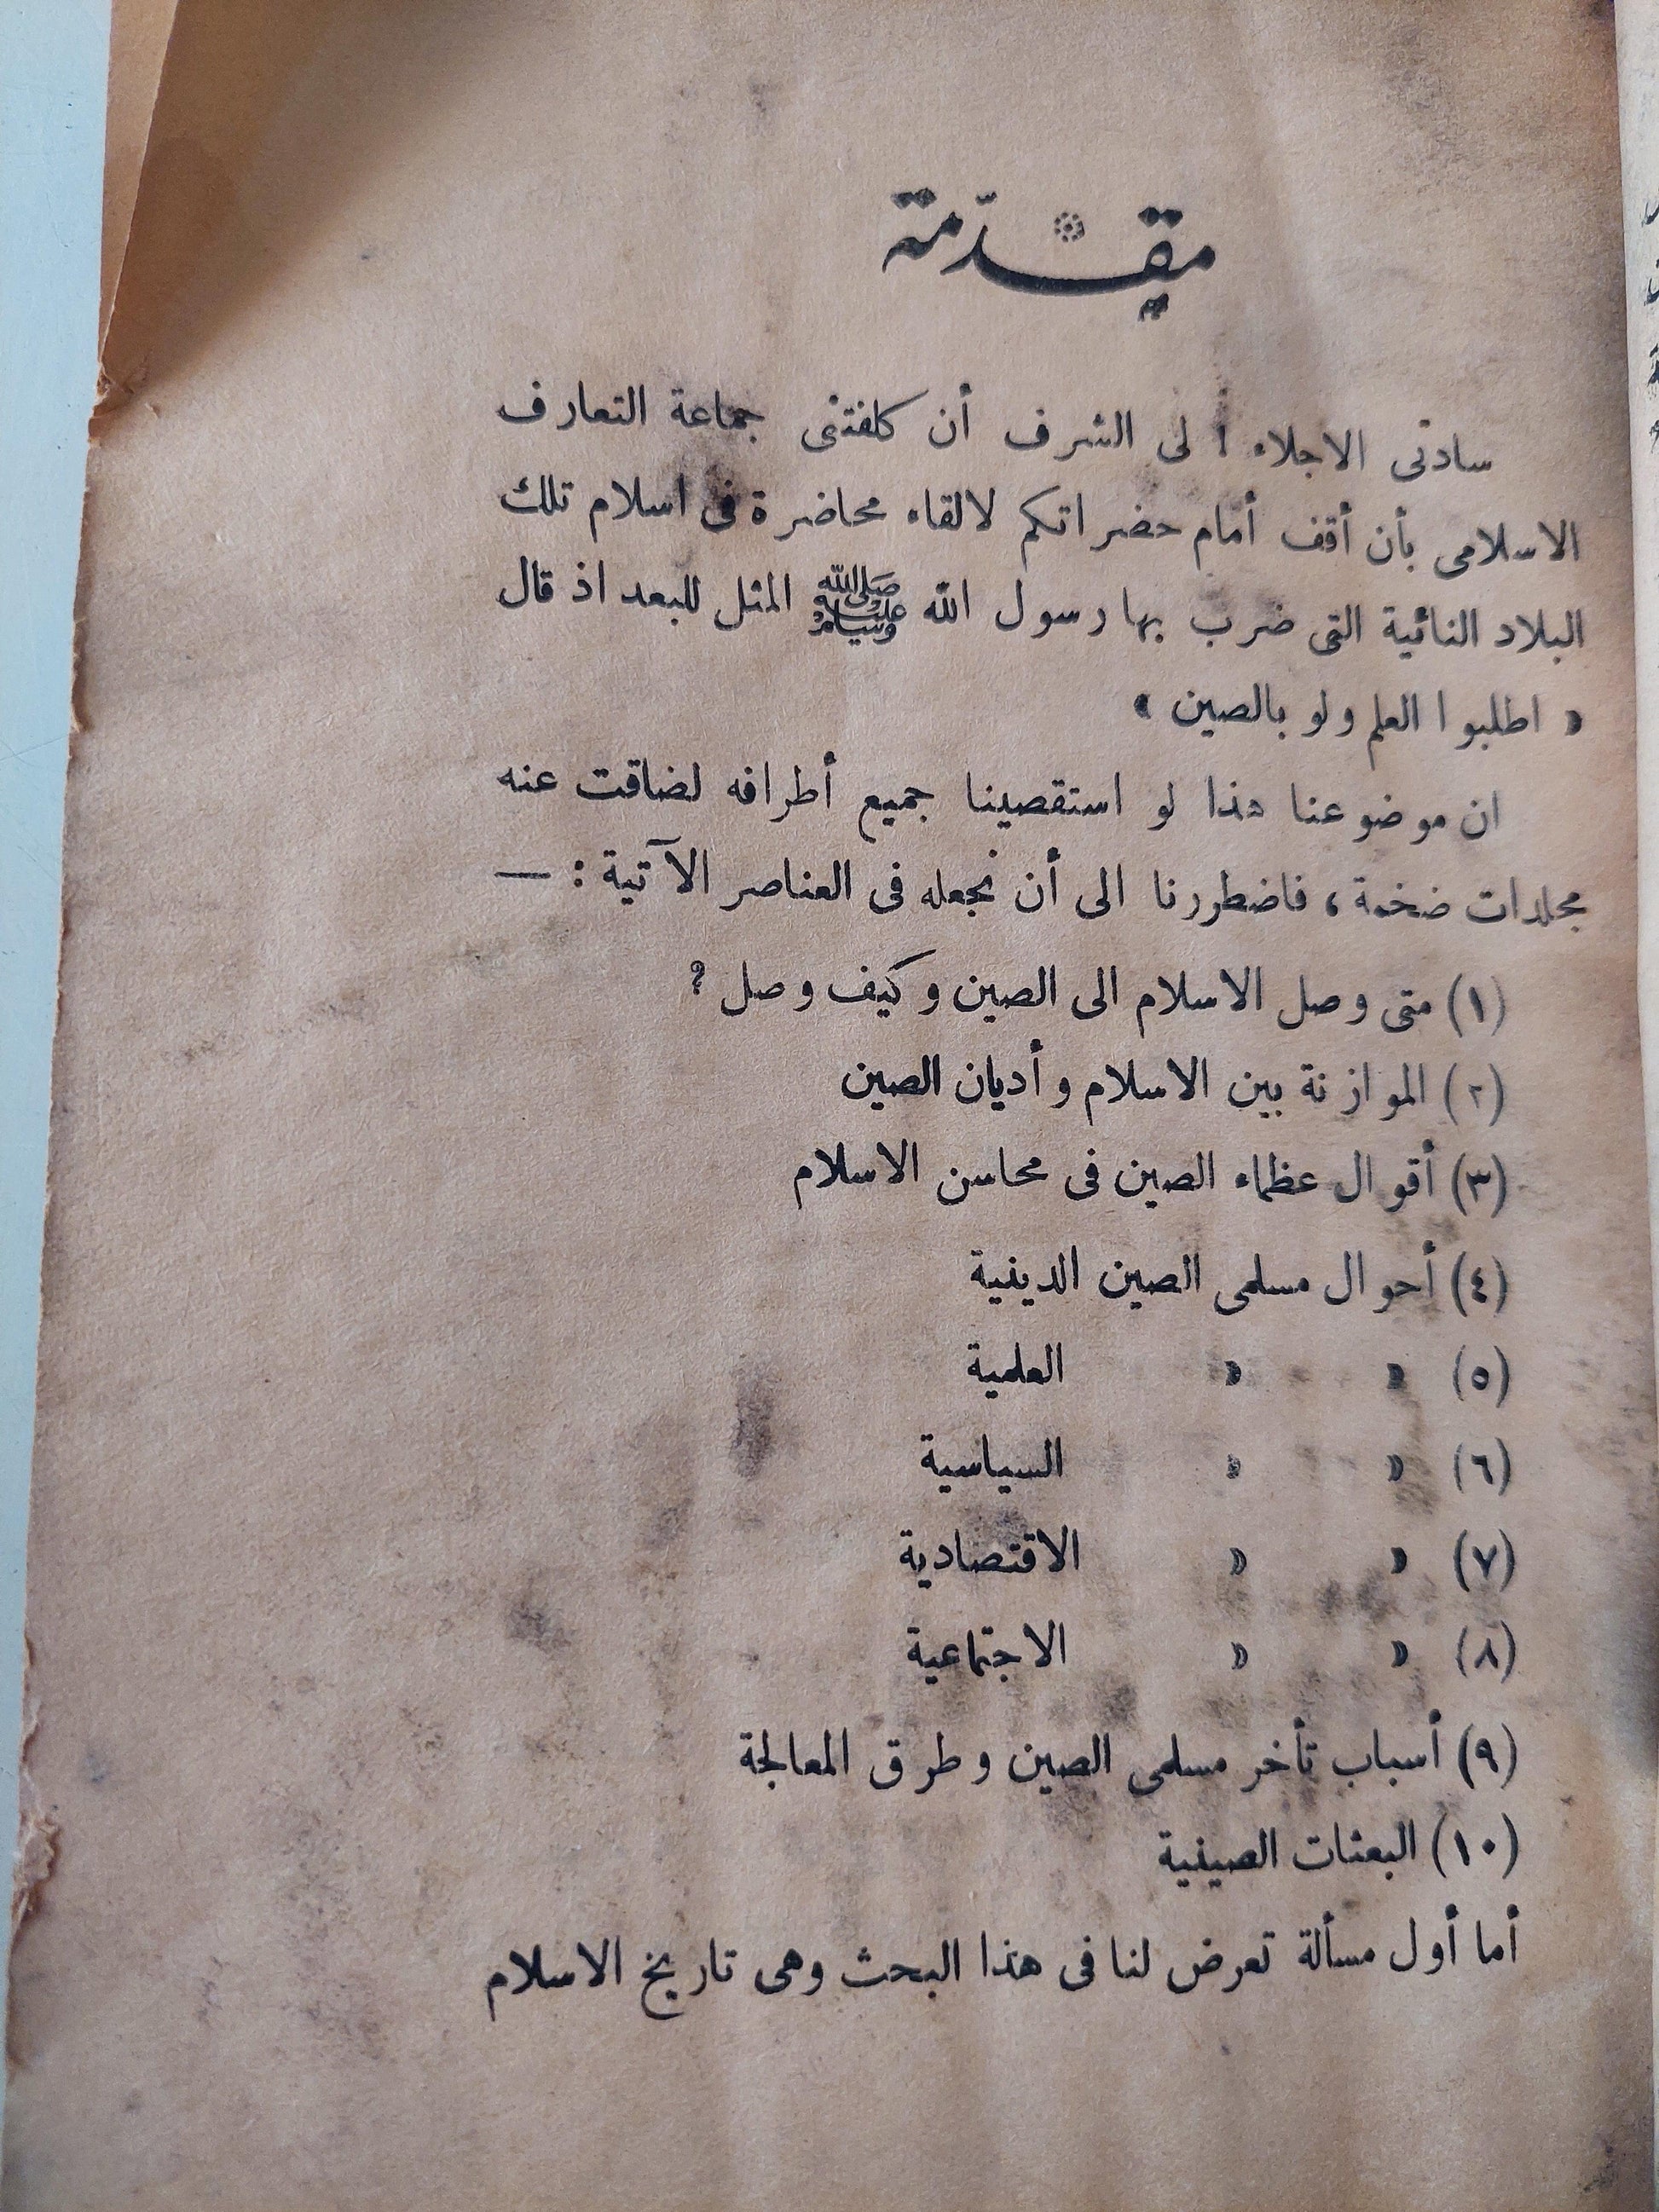 مقدّمة
سادتى الاجلاء ! لى الشرف أن كلفتنى جماعة التعارف
الاسلامى بأن أقف أمام حضراتكم لالقاء محاضرة فى اسلام تلك
البلاد النائية التى ضرب بها رسول الله ﷺ المثل للبعد اذ قال
« اطلبوا العلم ولو بالصين »
ان موضوعنا هذا لو استقصينا جميع أطرافه لضاقت عنه
مجلدات ضخمة ، فاضطررنا الى أن نجعله فى العناصر الآتية : —
(١) متى وصل الاسلام الى الصين وكيف وصل ?
(٢) الموازنة بين الاسلام وأديان الصين
(٣) أقوال عظماء الصين فى محاسن الاسلام
(٤) أحوال مسلمى الصين الدينية
(٥) » » العلمية
(٦) » » السياسية
(٧) » » الاقتصادية
(٨) » » الاجتماعية
(٩) أسباب تأخر مسلمى الصين وطرق المعالجة
(١٠) البعثات الصينية
أما أول مسألة تعرض لنا فى هذا البحث وهى تاريخ الاسلام